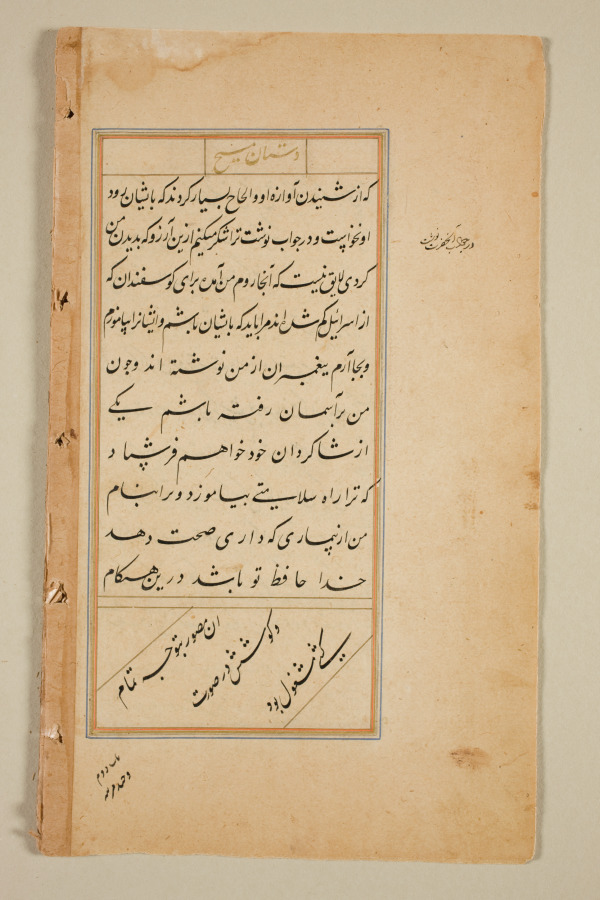 داستان مسیح
که از شنیدن آوازه او و الحاح بسیار کردند که با بشان رود
او نخواست و در جواب نوشت ترا شکر میکنم ازین آرزو که بدیدن من
کردی لایق نیست که آنجا روم من آمده برای کوسفندان که
از اسرائیل کم شده اند مرا باید که با بشان باشم و ایشانرا بیاموزم
و بجا آرم پیغمبران از من نوشته اند و چون
من بر آسمان رفته باشم یکی
از شاکردان خود خواهم فرستاد
که ترا راه سلامتی بیاموزد و برا بنام
من از بیماری که داری صحت دهد
خدا حافظ تو باشد درین هنکام
ان مصور بتوجه تمام
و کوشش در صورت
کشی مشغول بود
در جواب آنحضرت